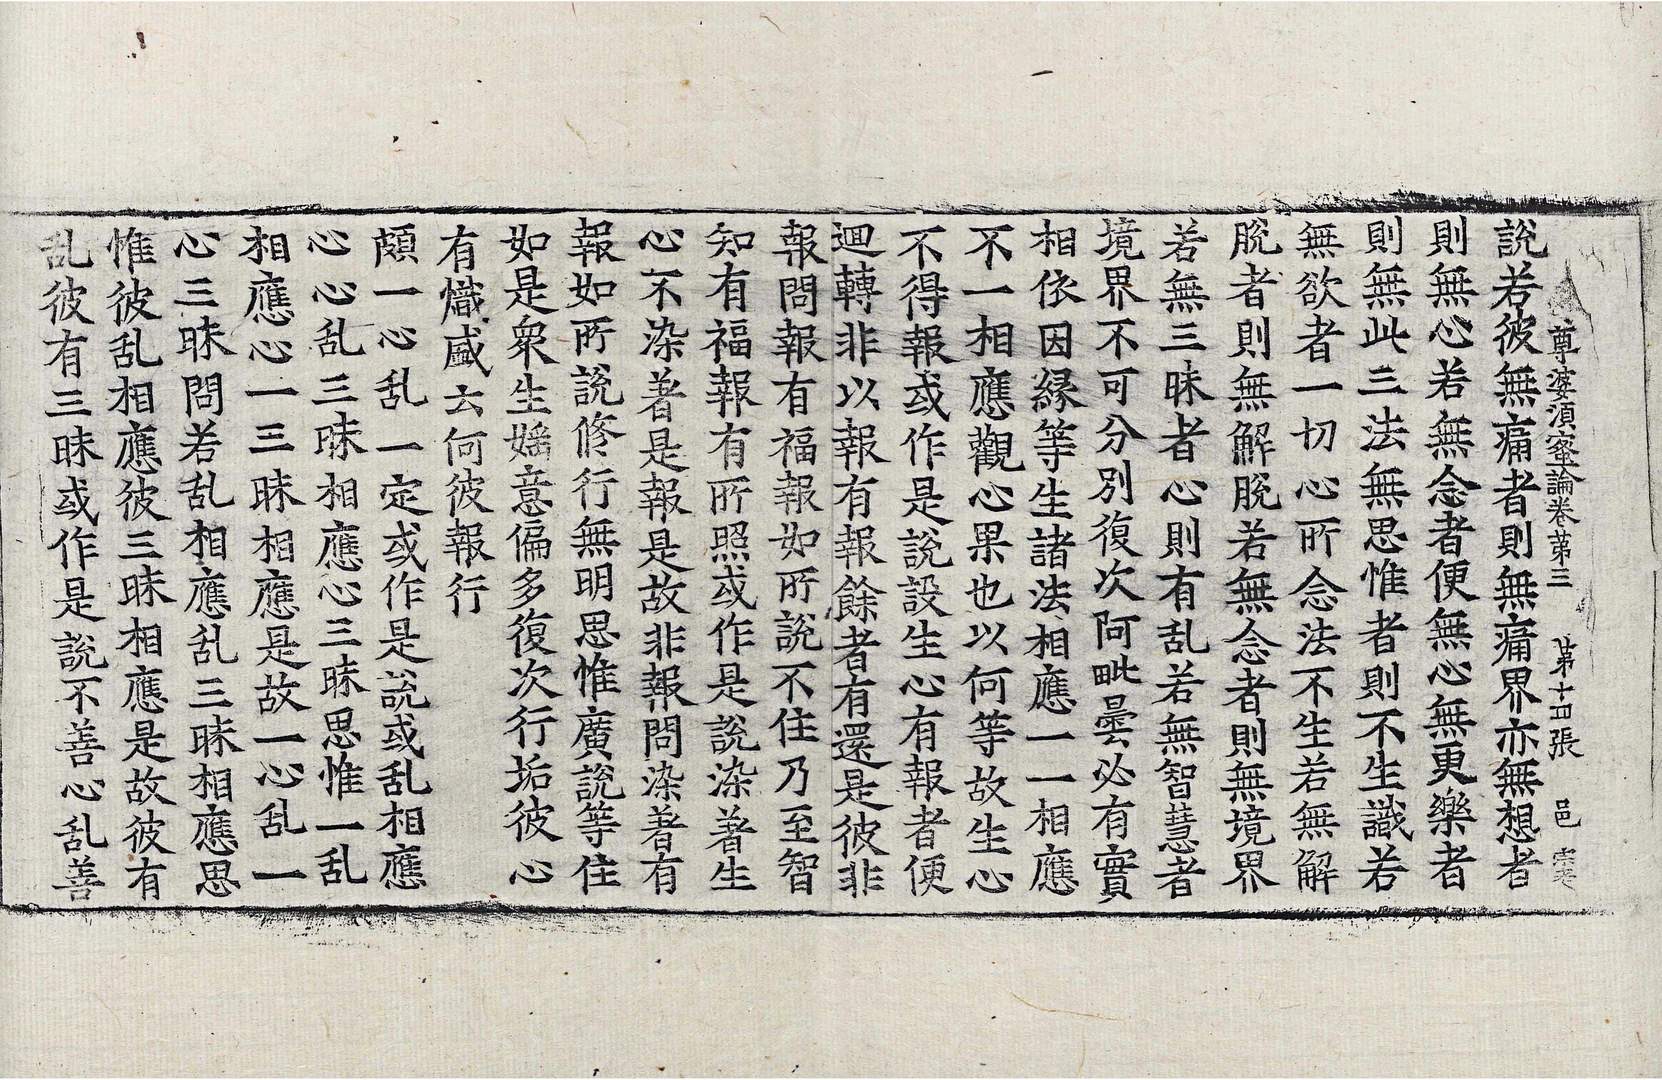 尊婆須蜜論卷第三　第十四張　邑
說若彼無痛者則無痛界亦無想者
則無心若無念者便無心無更樂者
則無此三法無思惟者則不生識若
無欲者一切心所念法不生若無解
脫者則無解脫若無念者則無境界
若無三昧者心則有乱若無智慧者
境界不可分別復次阿毗曇必有實
相依因緣等生諸法相應一一相應
不一相應觀心果也以何等故生心
不得報或作是說設生心有報者便
迴轉非以報有報餘者有還是彼非
報問報有福報如所說不住乃至智
知有福報有所照或作是說染著生
心不染著是報是故非報問染著有
報如所說修行無明思惟廣說等住
如是衆生婬意偏多復次行垢彼心
有熾盛云何彼報行
頗一心乱一定或作是說或乱相應
心心乱三昧相應心三昧思惟一乱
相應心一三昧相應是故一心乱一
心三昧問若乱相應乱三昧相應思
惟彼乱相應彼三昧相應是故彼有
乱彼有三昧或作是說不善心乱善